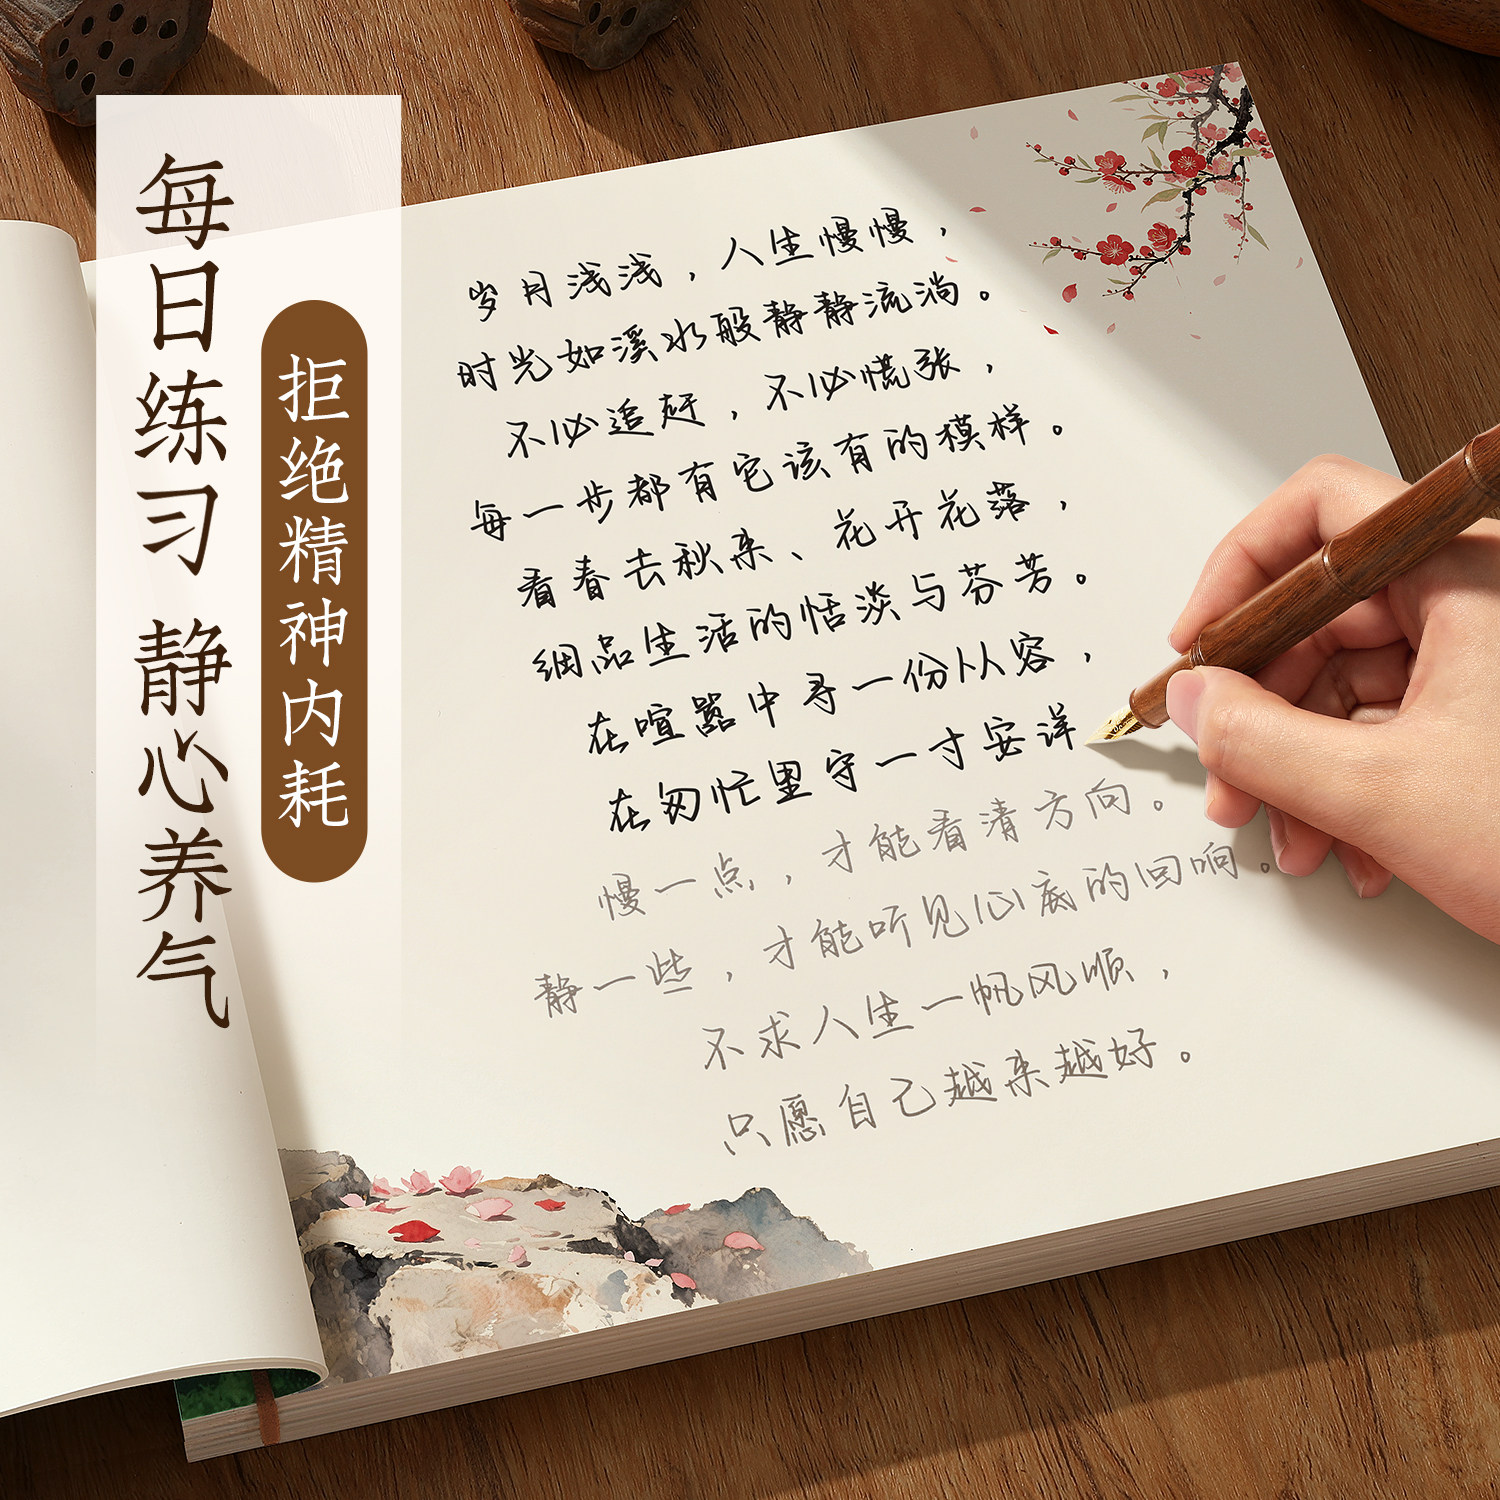 每日练习 静心养气
拒绝精神内耗
岁月浅浅，人生慢慢，
时光如溪水般静静流淌。
不必追赶，不必慌张，
每一步都有它该有的模样。
看春去秋来、花开花落，
细品生活的恬淡与芬芳。
在喧嚣中寻一份从容，
在匆忙里守一寸安详
慢一点，才能看清方向。
静一些，才能听见心底的回响。
不求人生一帆风顺，
只愿自己越来越好。